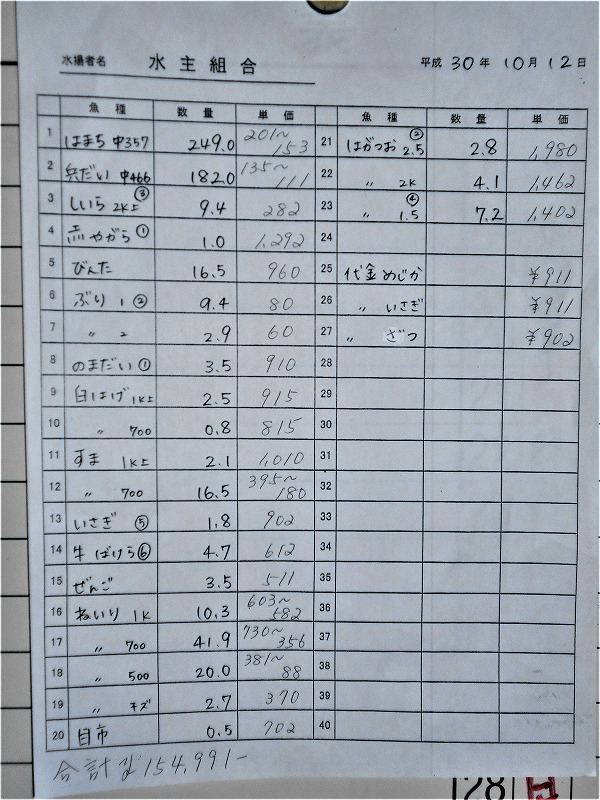 水揚者名 水主組合 平成30年10月12日
魚種 数量 単価 魚種 数量 単価
1 はまち 中357 249.0 201〜153
2 兵だい 中466 182.0 135〜111
3 しいら 2K上 ③ 9.4 282
4 赤やがら ① 1.0 1,292
5 びんた 16.5 960
6 ぶり 1 ② 9.4 80
7 〃 2 2.9 60
8 のまだい ① 3.5 910
9 白はげ 1K上 2.5 915
10 〃 700 0.8 815
11 すま 1K上 2.1 1,010
12 〃 700 16.5 395〜180
13 いさぎ ⑤ 1.8 902
14 牛ばけら ⑥ 4.7 612
15 ぜんご 3.5 511
16 ねいり 1K 10.3 603〜582
17 〃 700 41.9 730〜356
18 〃 500 20.0 381〜88
19 〃 キズ 2.7 370
20 目市 0.5 702
21 はがつお ② 2.5 2.8 1,980
22 〃 2K 4.1 1,462
23 〃 ④ 1.5 7.2 1,402
24
25 代金めじか ¥911
26 〃 いさぎ ¥911
27 〃 ざつ ¥902
28
29
30
31
32
33
34
35
36
37
38
39
40
合計 154,991-
128 日